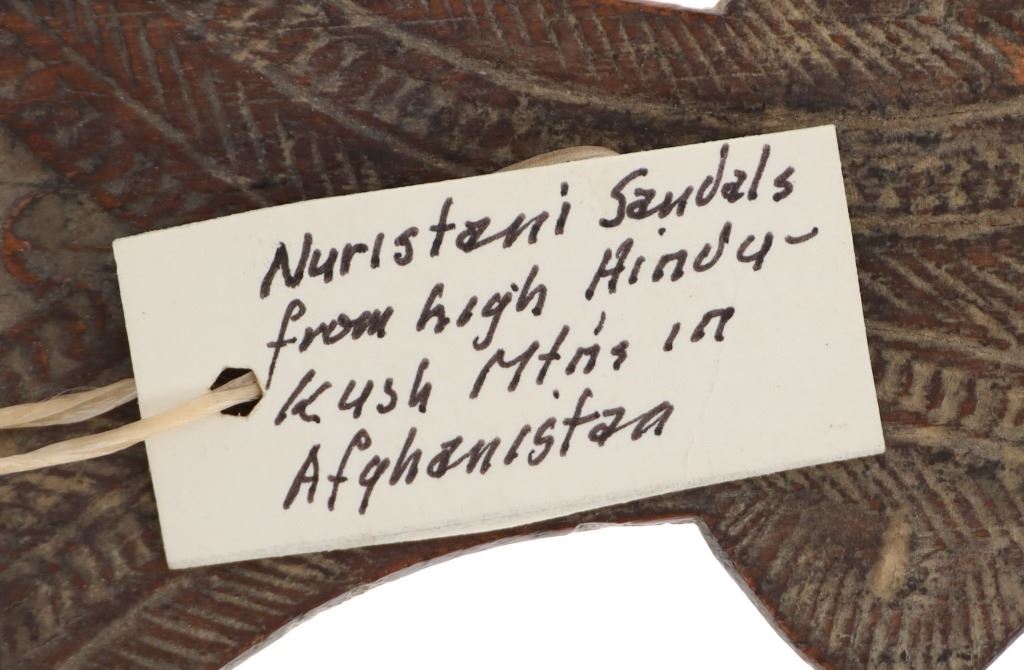 Nuristani Sandals
from high Hindu-
Kush Mtns in
Afghanistan